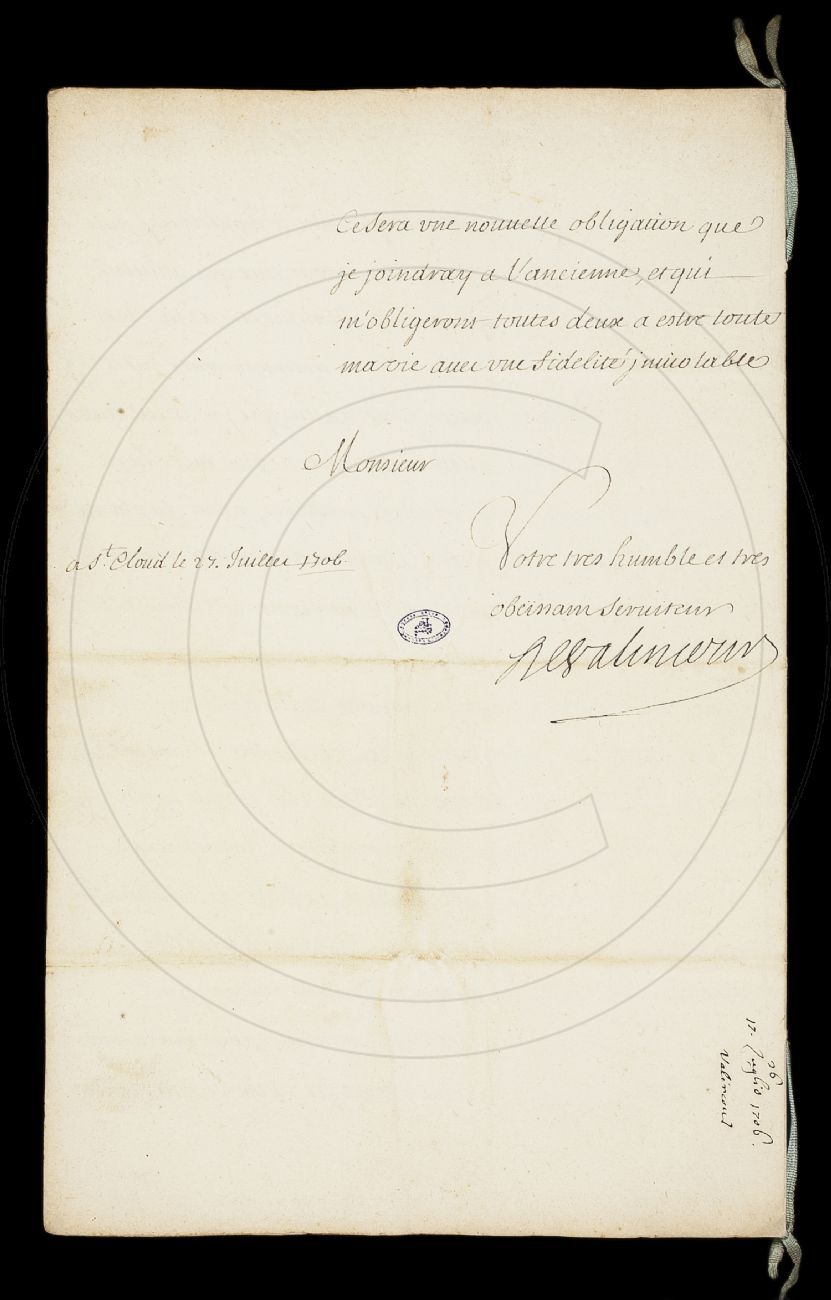 Ce sera vne nouuelle obligation que
je joindray a l'ancienne, et qui
m'obligeront toutes deux a estre toute
ma vie auec vne fidelité jnuiolable
Monsieur
Votre tres humble et tres
a St. Cloud le 27. Juillet 1706.
obeissant seruiteur
Valincour
26
17. Juglio 1706.
Valincourt